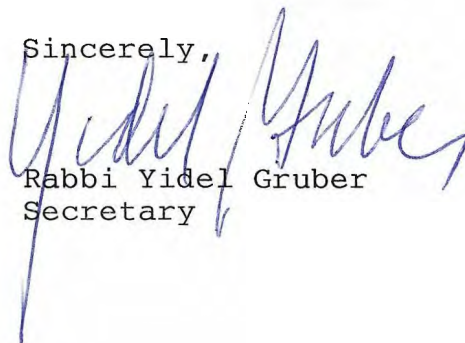 Sincerely,
Yidel Gruber
Rabbi Yidel Gruber
Secretary